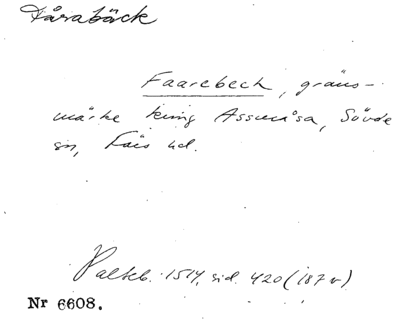 Fårabäck
Faarebech, gräns-
märke kring Assmåsa, Sövde
sn, Färs hd.
Palteb. 1514, sid. 420 (187 v)
Nr 6608.